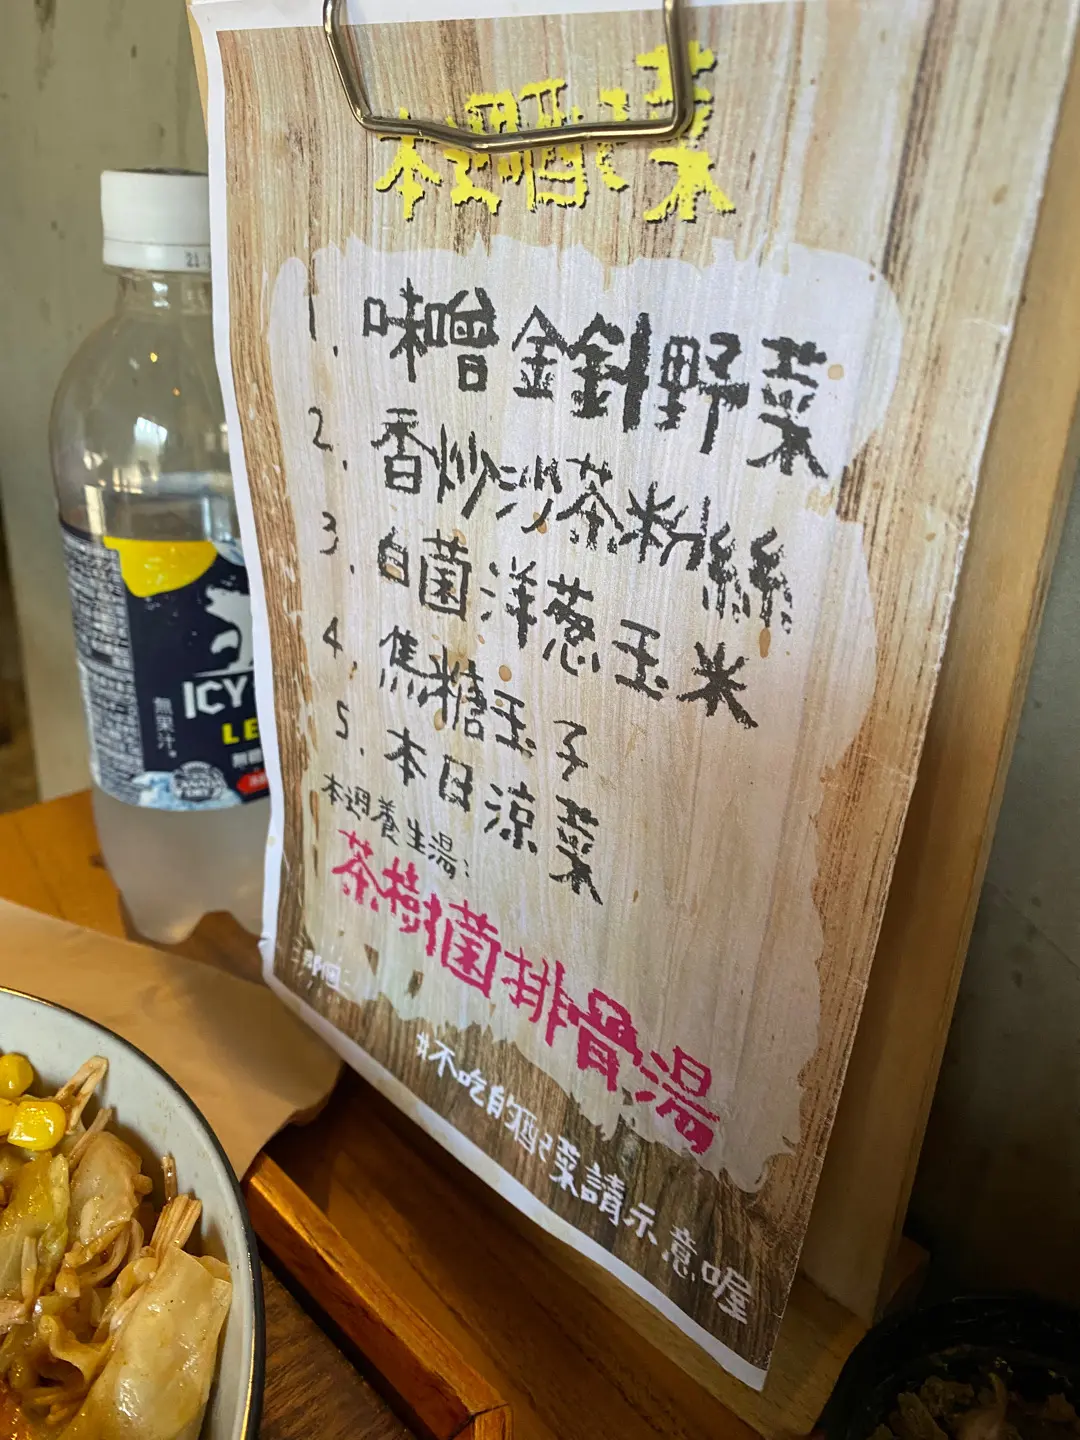 本週配菜
1. 味噌金針野菜
2. 香炒沙茶粉絲
3. 白菌洋蔥玉米
4. 焦糖玉子
5. 本日涼菜
本週養生湯:
茶樹菌排骨湯
#不吃的配菜請示意喔
21
ICY
LE
無果汁。